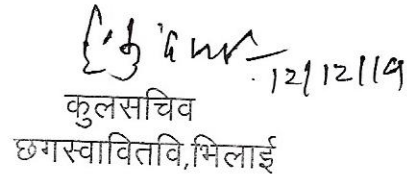 12/12/19
कुलसचिव
छगस्वावितवि,भिलाई